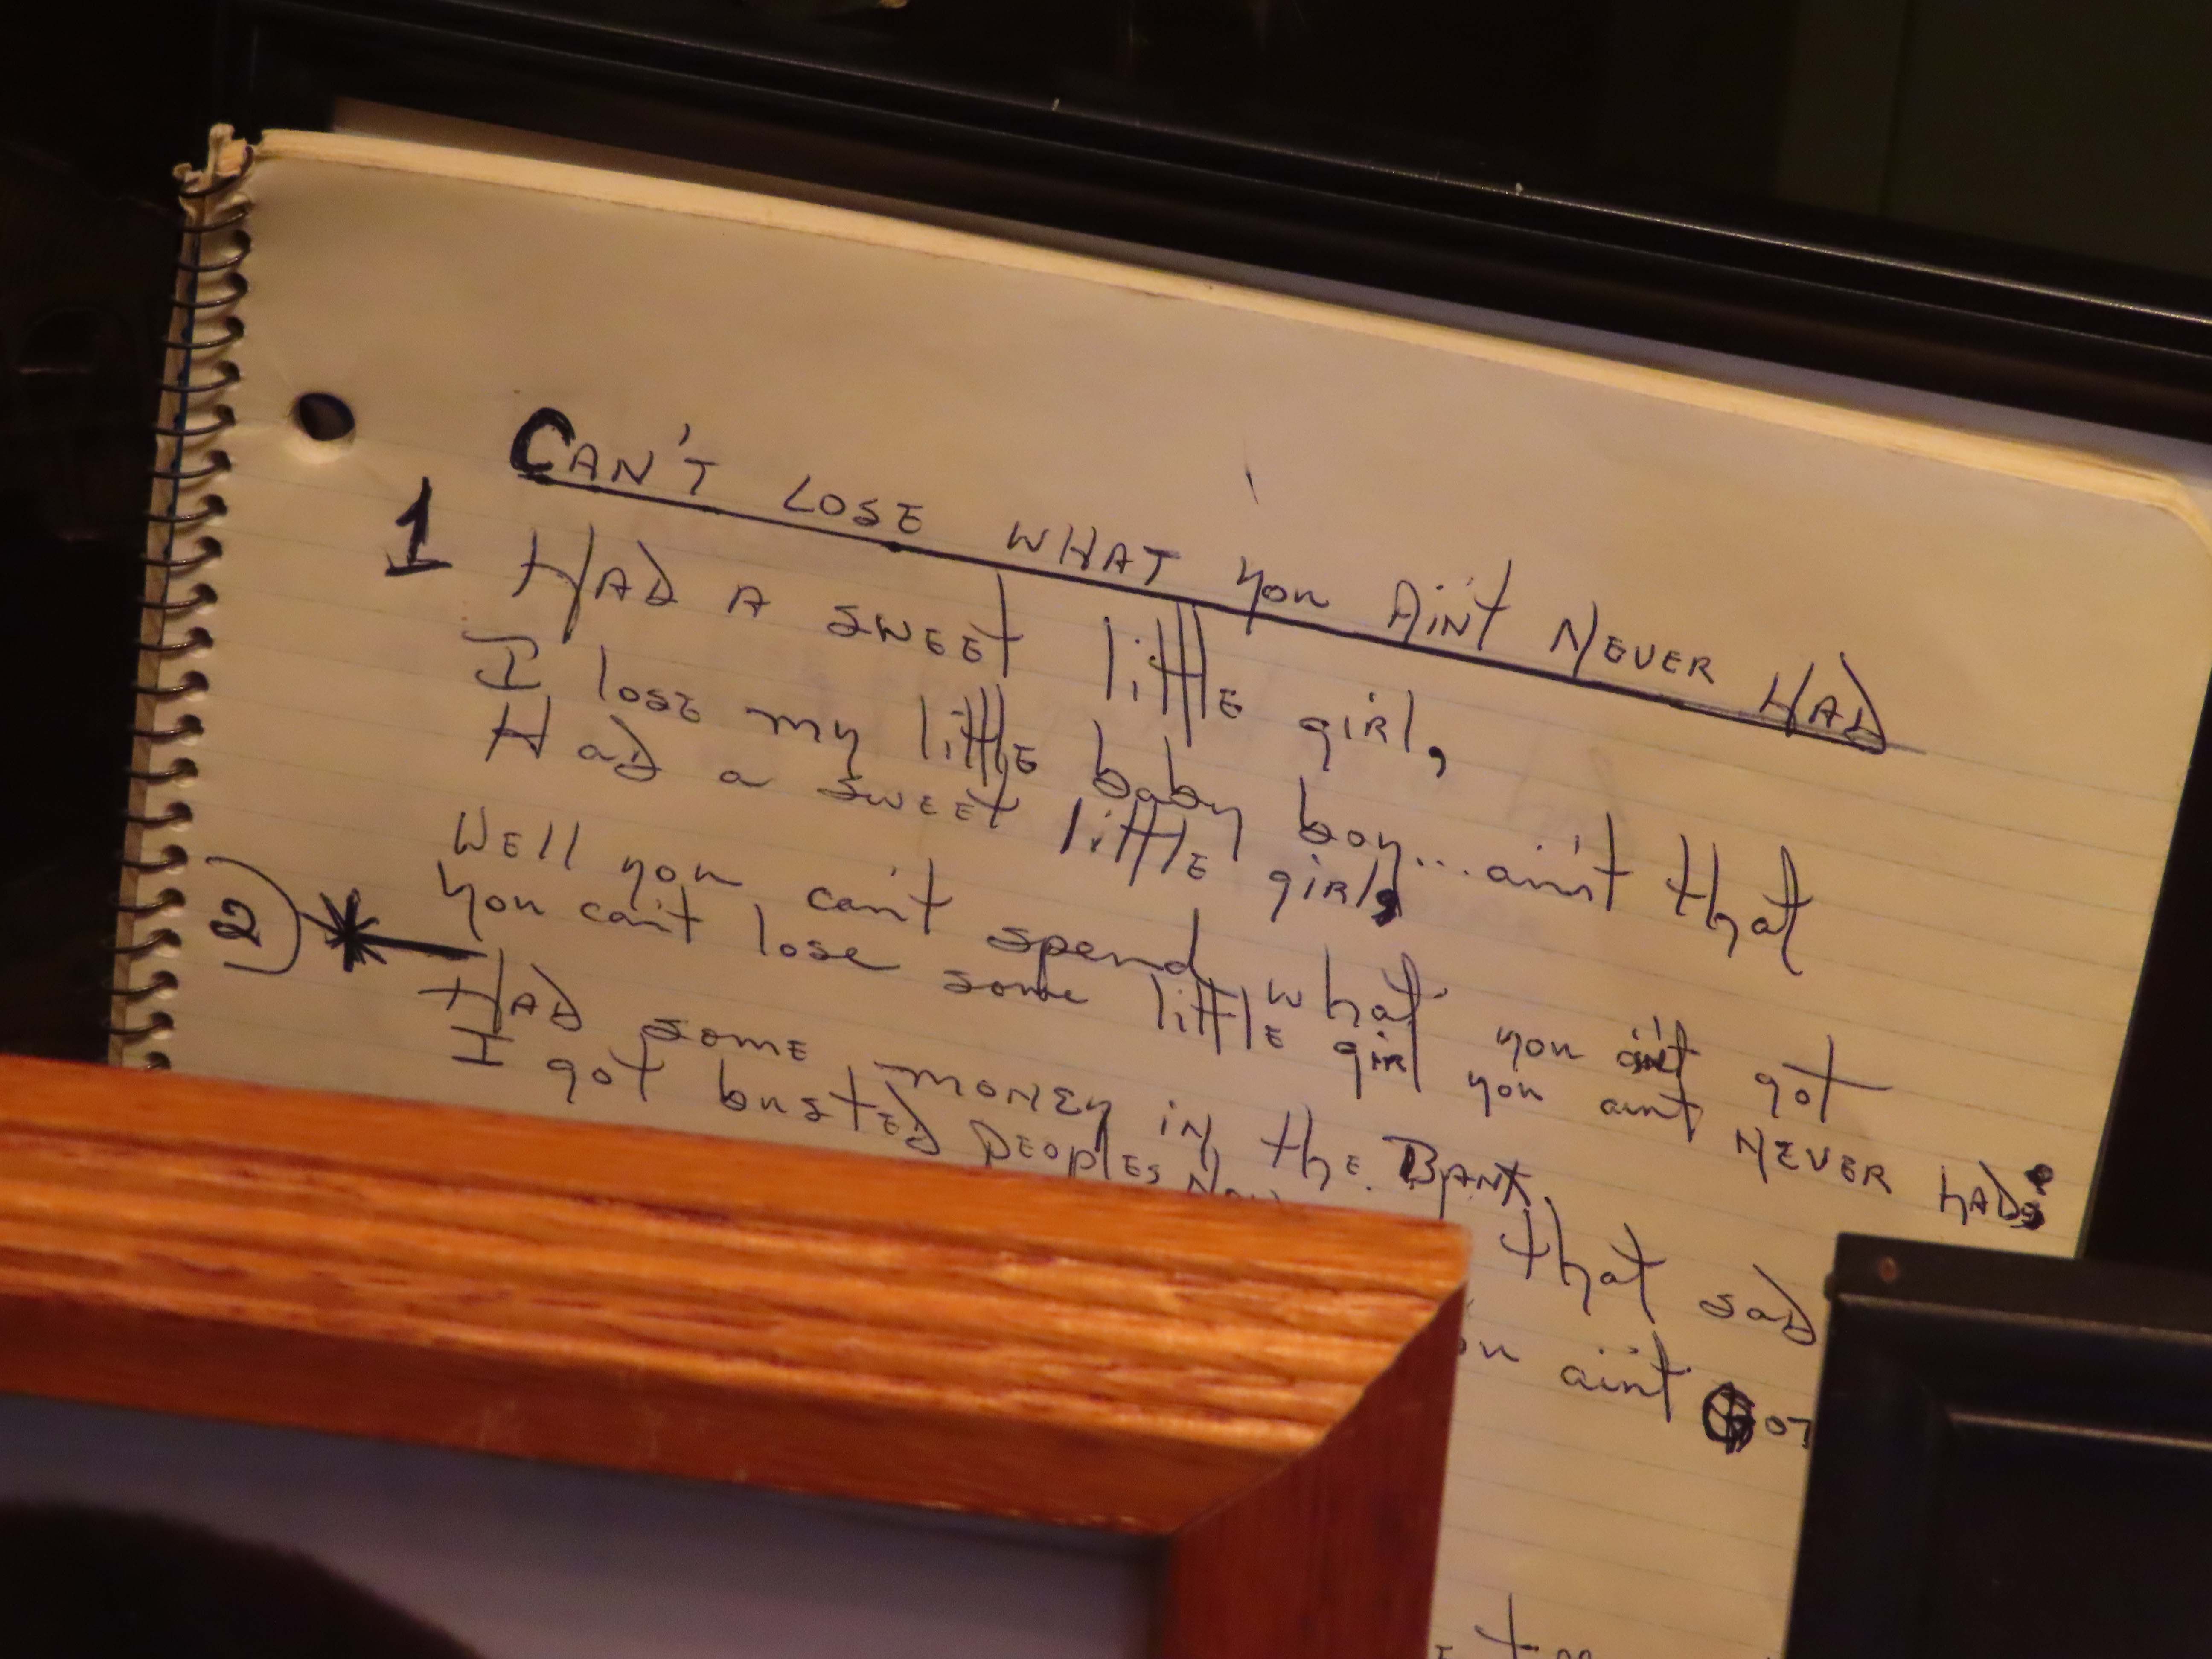 CAN'T LOSE WHAT you Ain't NEVER HAD
1 HAD A SWEET little girl,
I lose my little baby boy... ain't that
Had a SWEET little girl,
Well you can't spend what you ain't got
you can't lose some little girl you ain't NEVER HAD
2) HAD some MONEY in the BANK,
I got busted PEOPLES
that sad
ain't GOT